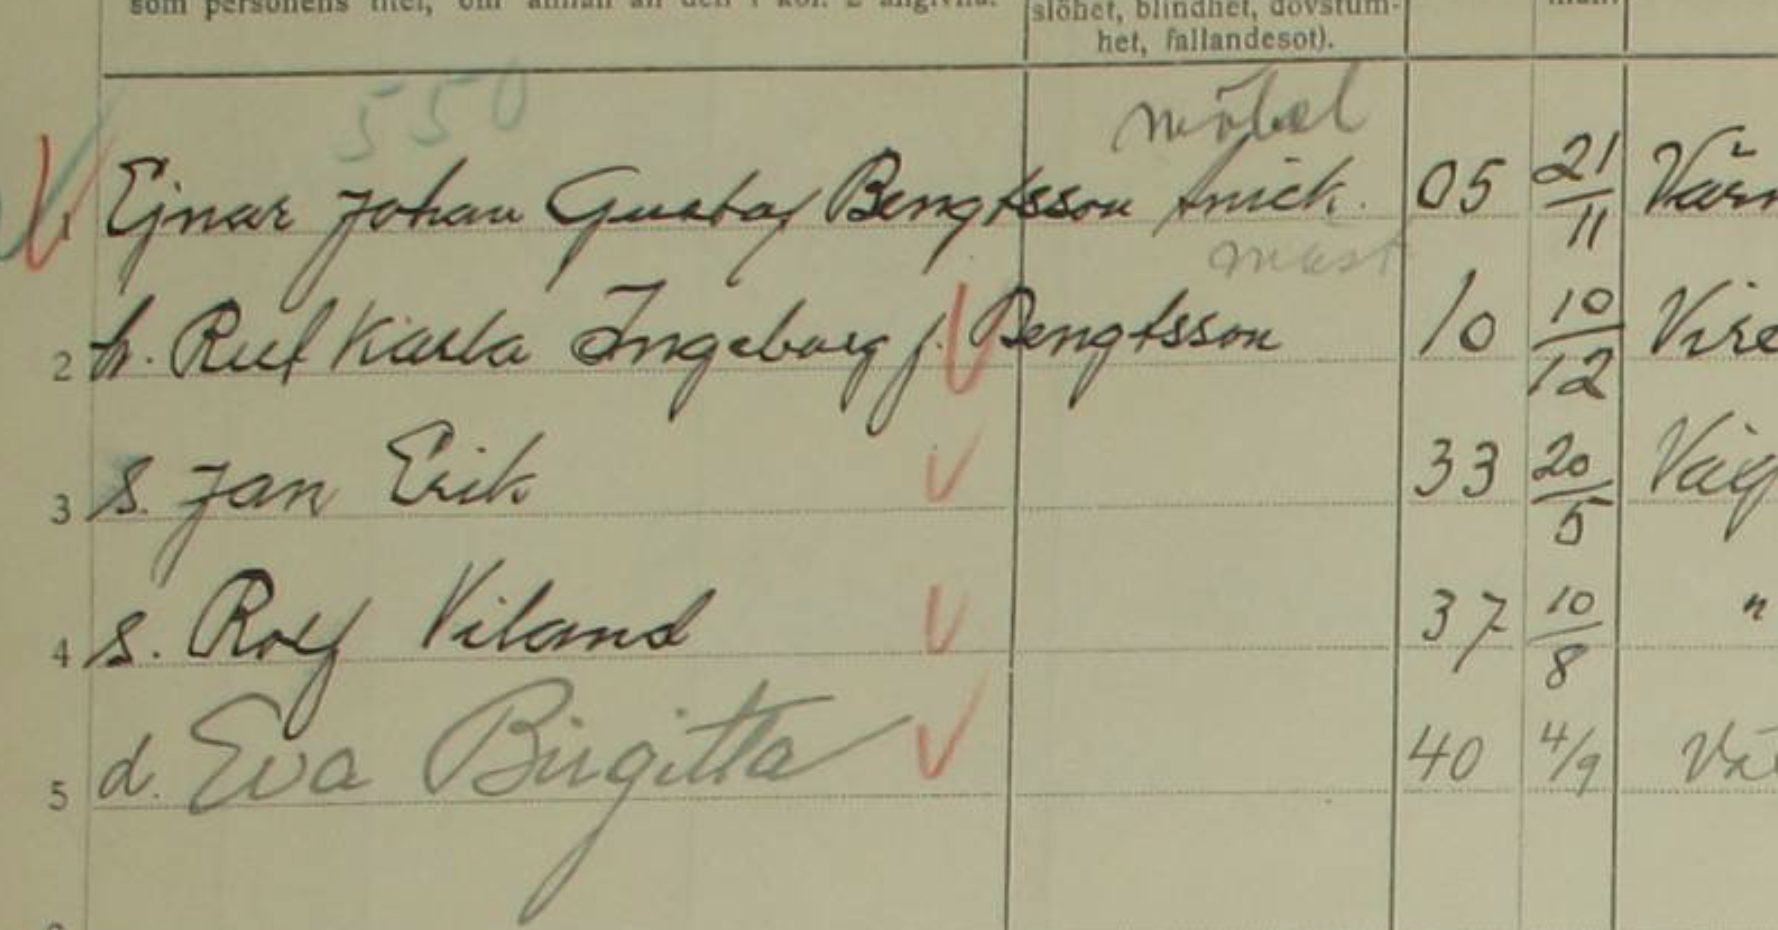 som personens titel, om annan än den i kol. 2 angivna.
slöhet, blindhet, dövstum-
het, fallandesot).
550
möbel
1 Ejnar Johan Gustaf Bengtsson snick. 05 21/11
mäst
2 h. Rut Karla Ingeborg f. Bengtsson 10 10/12
3 s. Jan Erik 33 20/5
4 s. Rolf Viland 37 10/8 "
5 d. Eva Birgitta 40 4/9